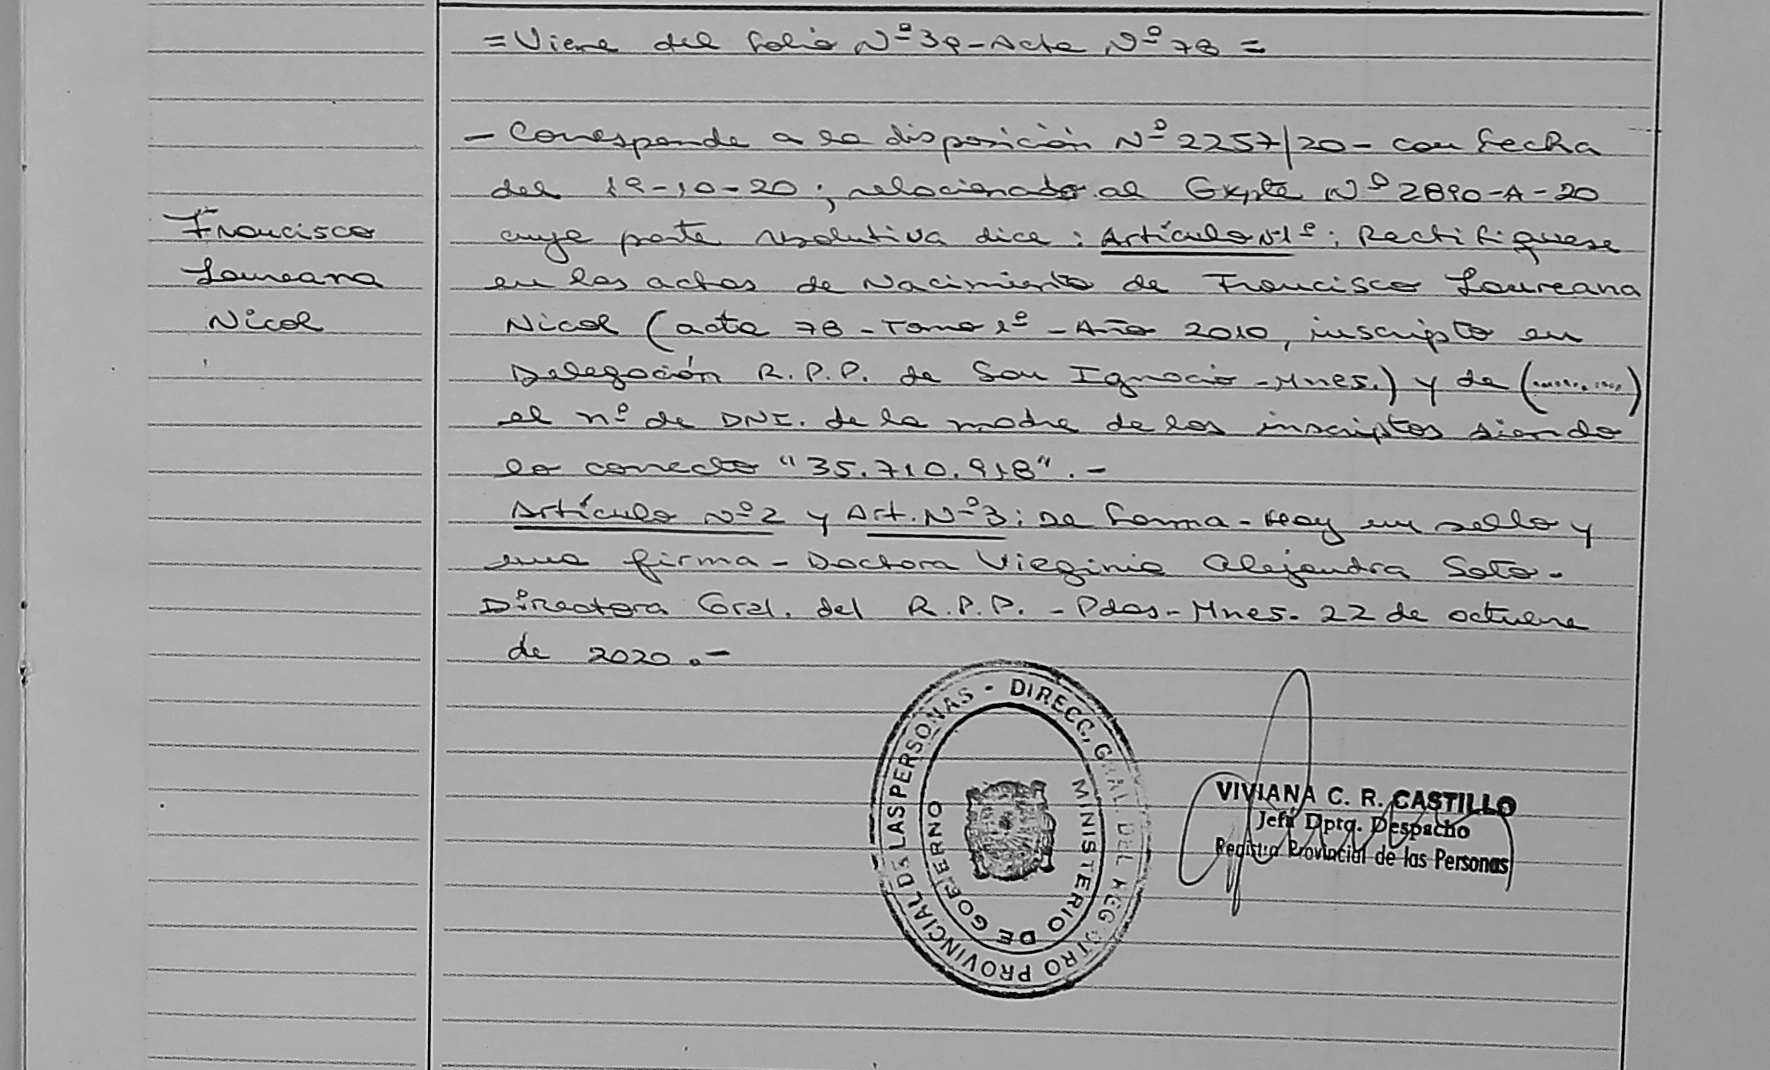 = Viene del folio Nº 39 - Acta Nº 78 =
- Corresponde a la disposición Nº 2257/20 - con fecha
del 19-10-20; relacionado al Expte Nº 2890-A-20
cuya parte resolutiva dice: Artículo Nº 1º: Rectifiquese
en las actas de Nacimiento de Francisco Laureana
Nicol (acta 78 - Tomo 1º - Año 2010, inscripto en
Delegación R.P.P. de San Ignacio - Mnes.) y de (..........)
el nº de DNI. de la madre de los inscriptos siendo
lo correcto "35.710.918". -
Artículo Nº 2 y Art. Nº 3: De forma - Hay un sello y
una firma - Doctora Virginia Alejandra Soto -
Directora Gral. del R.P.P. - Pdas - Mnes. 22 de octubre
de 2020. -
Francisco
Laureana
Nicol
DIRECC. GRAL. DEL REGISTRO PROVINCIAL DE LAS PERSONAS -
MINISTERIO DE GOBIERNO
VIVIANA C. R. CASTILLO
Jefa Dpto. Despacho
Registro Provincial de las Personas